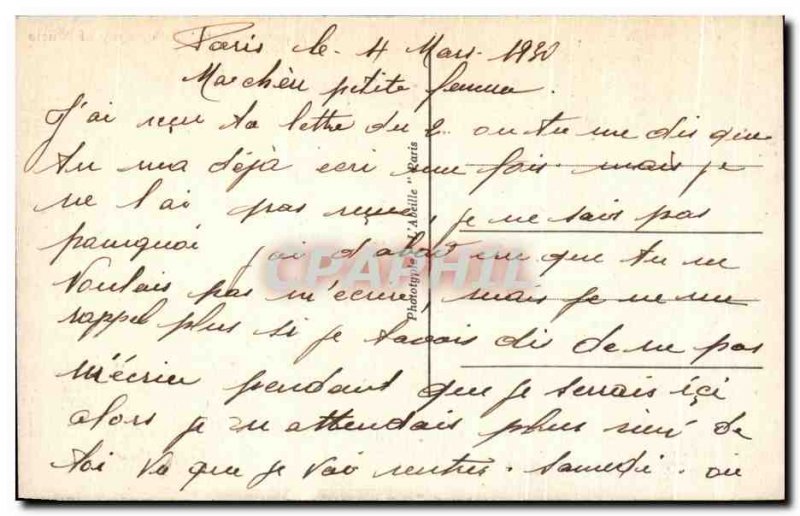 Paris le 4 Mars 1930
Ma chèr petite femme.
J'ai reçu ta lettre du 2 ou tu me dis que
tu ma déjà ecri une fois mais je
ne l'ai pas reçue, je ne sais pas
pourquoi j'ai d'abor cru que tu ne
voulais pas m'ecrire, mais je ne me
rappel plus si je t'avais dis de ne pas
m'écrire pendant que je serrais içi
alors je n'attendais plus rien de
toi vu que je vai rentrer samedi ou
Phototypie "L'Abeille" Paris
CPAPHIL